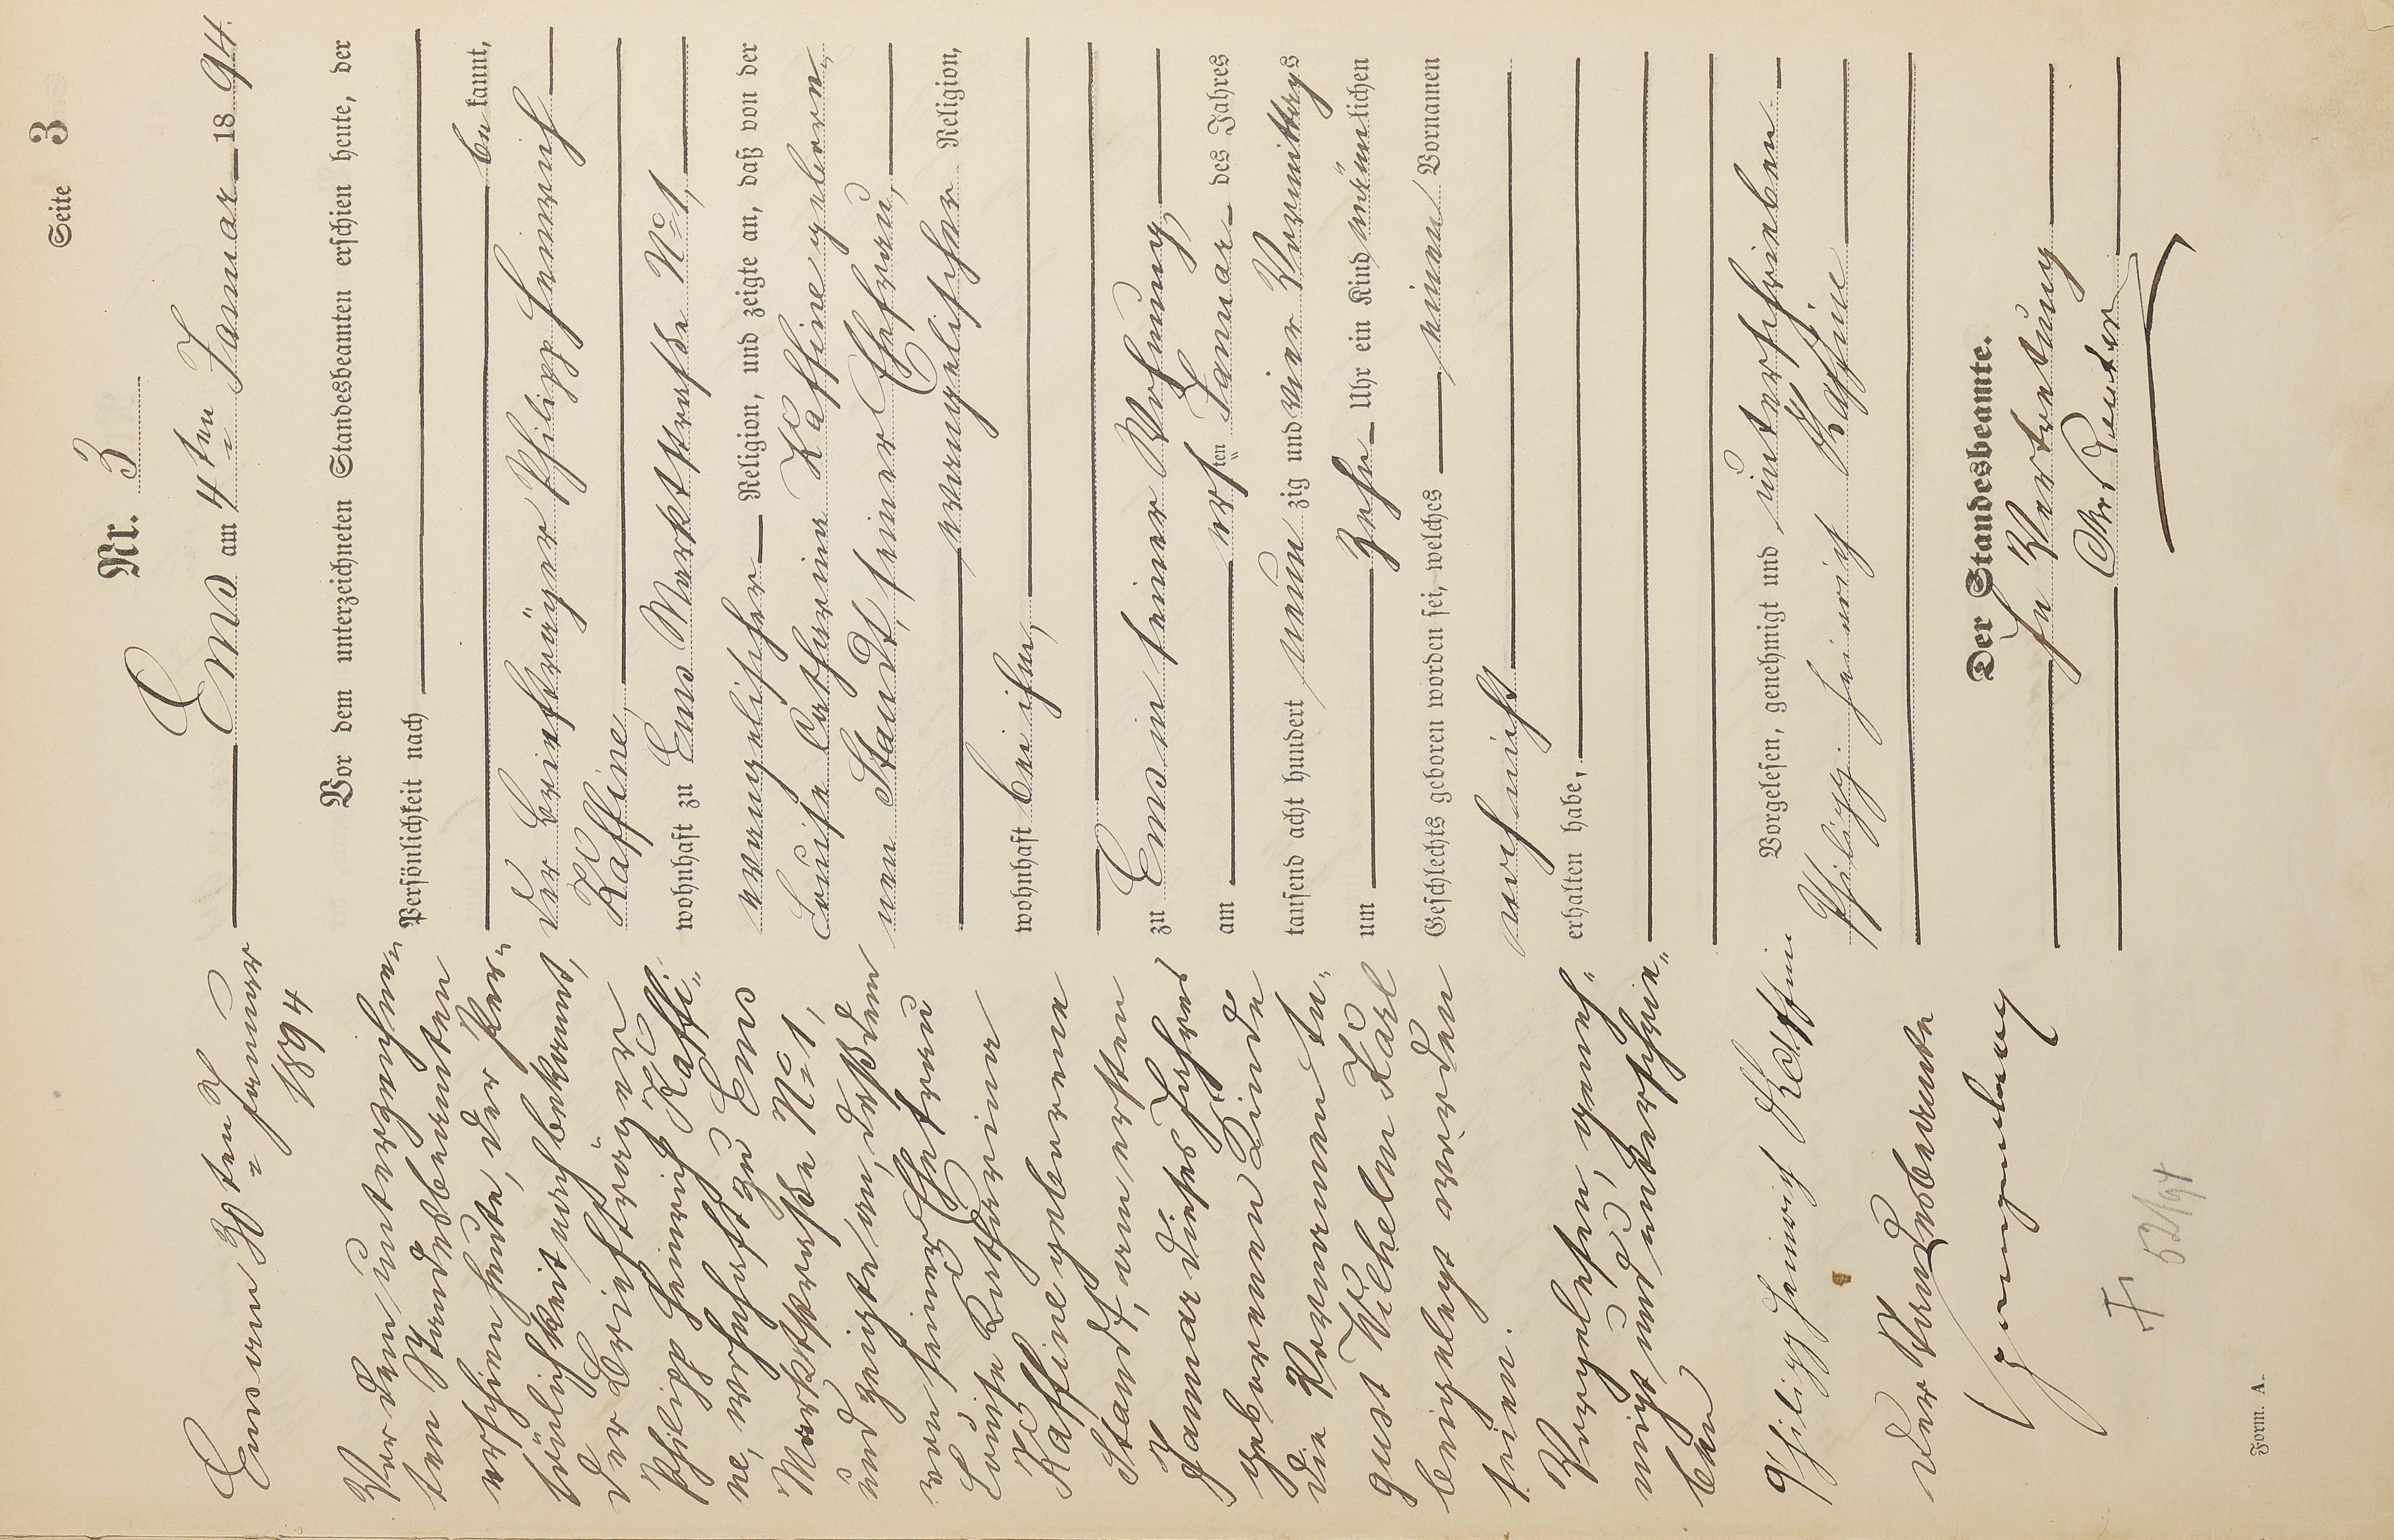 Seite 3
Nr. 3
Ems am 4ten Januar 1894.
Vor dem unterzeichneten Standesbeamten erschien heute, der
Persönlichkeit nach
bekannt,
der Briefträger Philipp Heinrich
Kaffine,
wohnhaft zu Ems Marktstraße No 1,
evangelischer Religion, und zeigte an, daß von der
Louise Catharine Kaffine gebore-
nen Staudt, seiner Ehefrau,
evangelischer Religion,
wohnhaft bei ihm,
zu Ems in seiner Wohnung
am ersten Januar des Jahres
tausend acht hundert neunzig und vier Vormittags
um Zehn Uhr ein Kind männlichen
Geschlechts geboren worden sei, welches einen Vornamen
noch nicht
erhalten habe,
Vorgelesen, genehmigt und unterschrieben
Philipp Heinrich Kaffine
Der Standesbeamte.
In Vertretung
Reuter
Ems am 30ten Januar
1894
Vor dem unterzeichne-
ten Standesbeamten
erschien heute, der Per-
sönlichkeit nach bekannt,
der Briefträger
Philipp Heinrich Kaffi-
ne, wohnhaft zu Ems
Marktstraße No 1,
und zeigte an, daß dem
von seiner Ehefrau
Louise Katharina
Kaffine geborene
Staudt, am ersten
Januar dieses Jahres
geborenen Kinde
die Vornamen Au-
gust Wilhelm Karl
beigelegt worden
seien.
Vorgelesen, geneh-
migt und unterschrie-
ben
Philipp Heinrich Kaffine
Der Standesbeamte
52/94
Form. A.